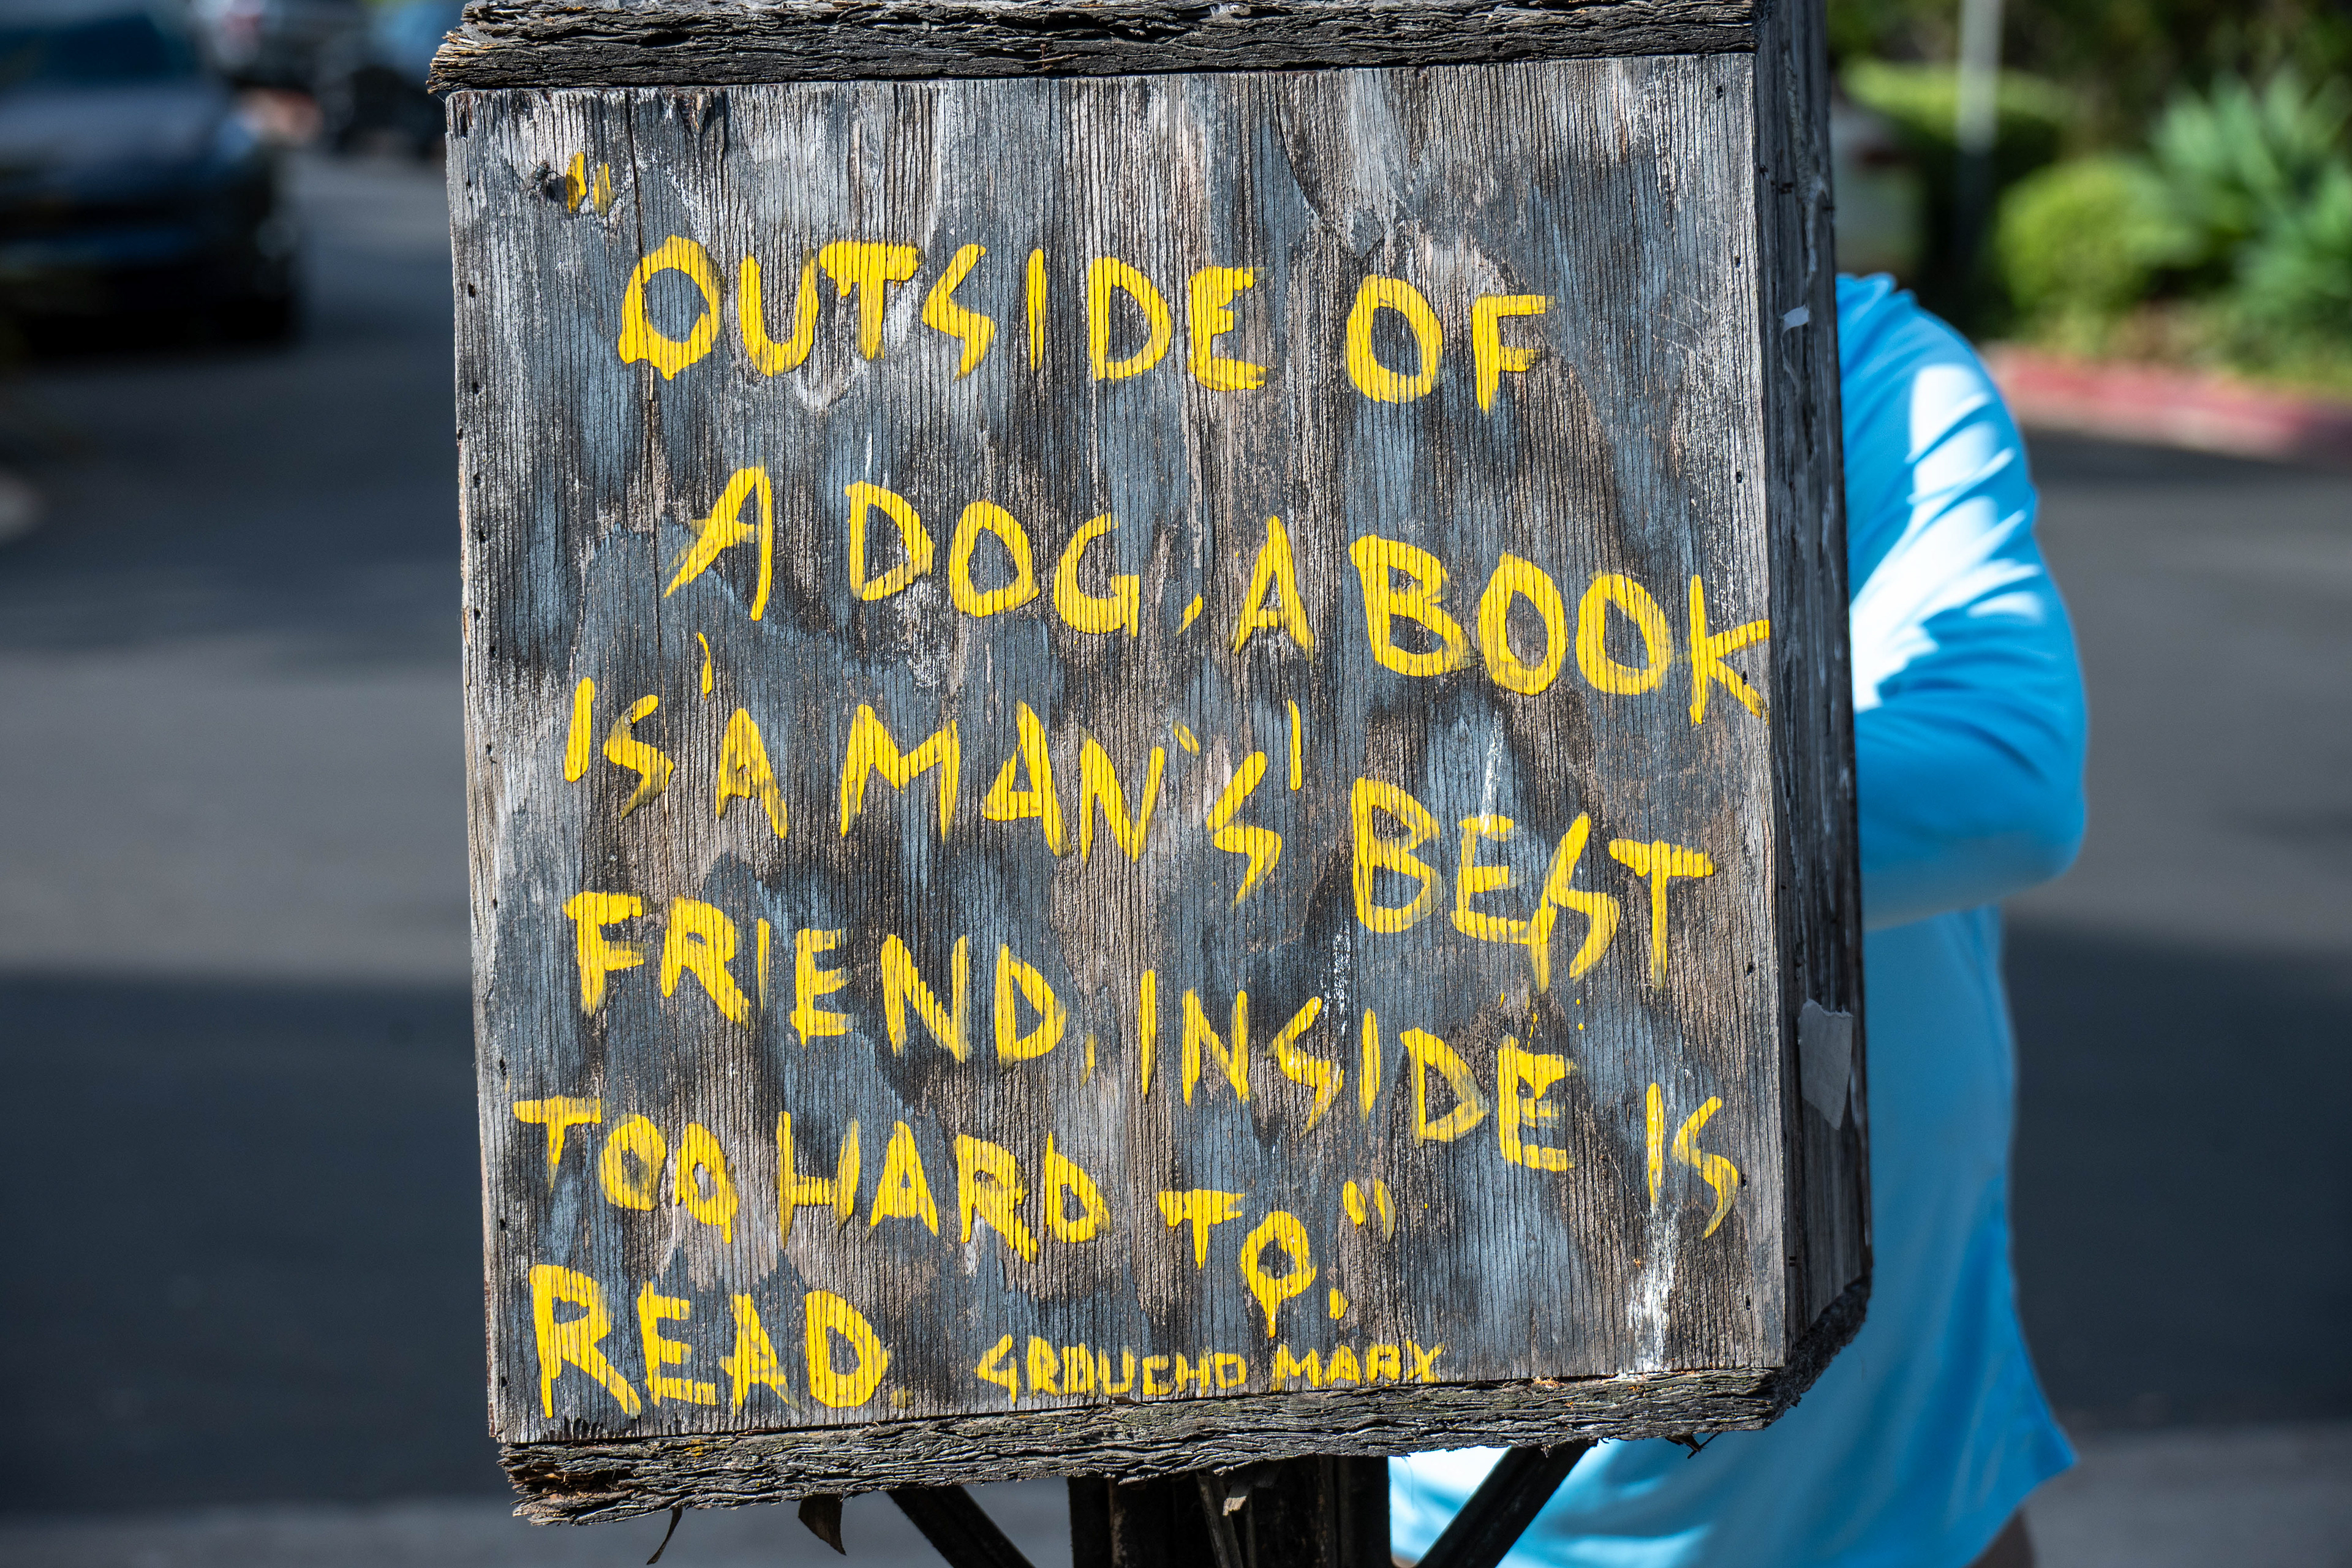 "OUTSIDE OF
A DOG, A BOOK
IS 'A MAN'S' BEST
FRIEND, INSIDE IS
TOO HARD TO."
READ. GROUCHO MARX